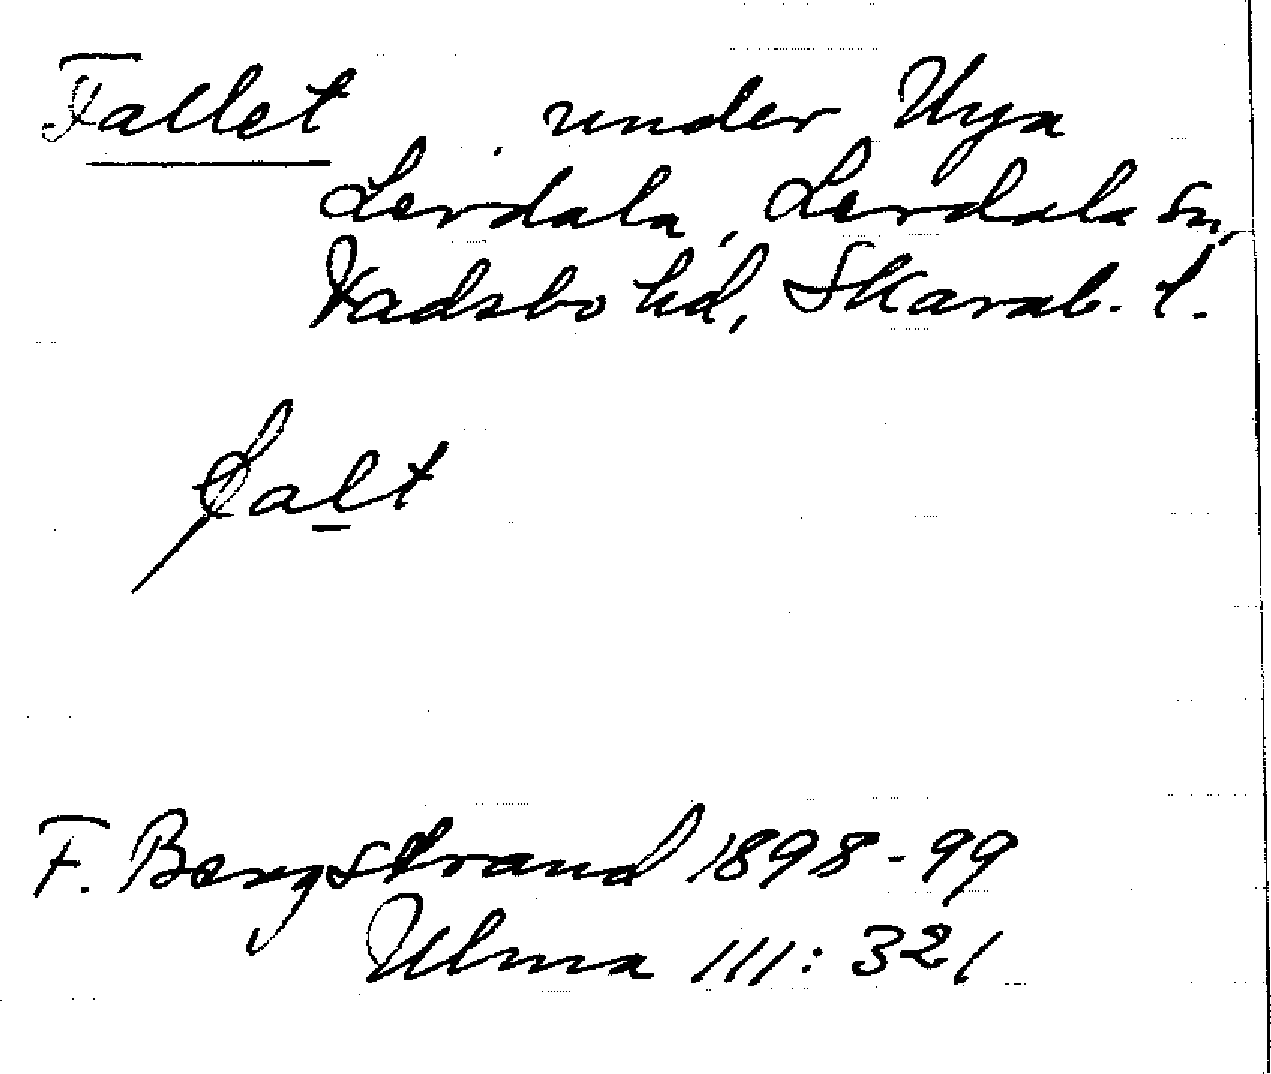 Fallet under Nya
Lerdala, Lerdala sn,
Vadsbo hd, Skarab. l.
falt
F. Bergstrand 1898-99
Ulma 111:321